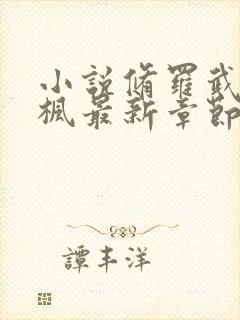 小說脩羅武
楓最新章節
譚丰洋